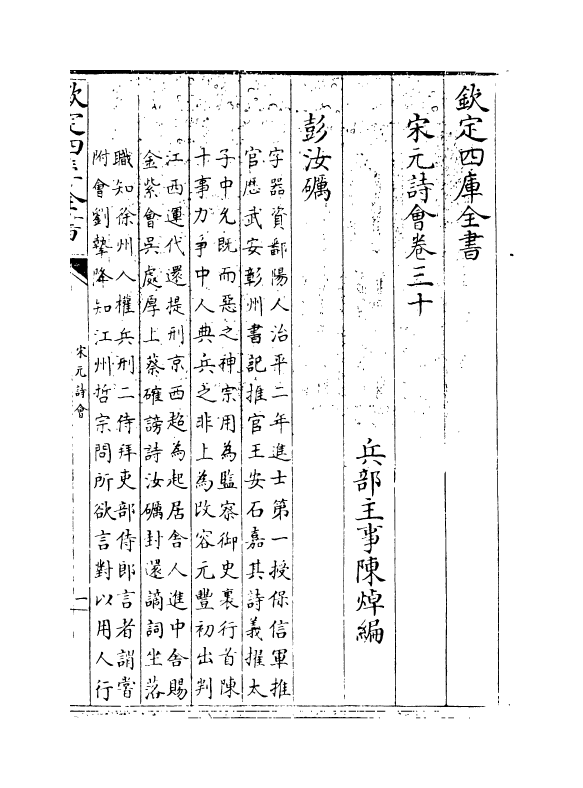 欽定四庫全書
宋元詩會卷三十
兵部主事陳焯編
彭汝礪
字器資鄱陽人治平二年進士第一授保信軍推
官歴武安彰州書記推官王安石嘉其詩義擢太
子中允既而惡之神宗用為監察御史裏行首陳
十事力爭中人典兵之非上為改容元豐初出判
江西運代還提刑京西超為起居舍人進中舍賜
金紫會吳處厚上蔡確謗詩汝礪封還謫詞坐落
職知徐州入權兵刑二侍拜吏部侍郎言者謂嘗
附會劉摯降知江州哲宗問所欲言對以用人行
欽定四庫全書
宋元詩會
一